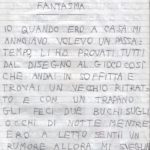 FANTASMA
IO QUANDO ERO A CASA MI
ANNOIAVO. VOLEVO UN PASSA-
TEMPO. LI HO PROVATI TUTTI
DAL DISEGNO AL GIOCO COSI
CHE ANDAI IN SOFFITTA E
TROVAI UN VECHIO RITRAT-
TO E CON UN TRAPANO
GLI FECI DUE BUCHI SUGLI
OCCHI. DI NOTTE MENTRE
ERO A LETTO SENTII UN
RUMORE ALLORA MI SVEGLIA